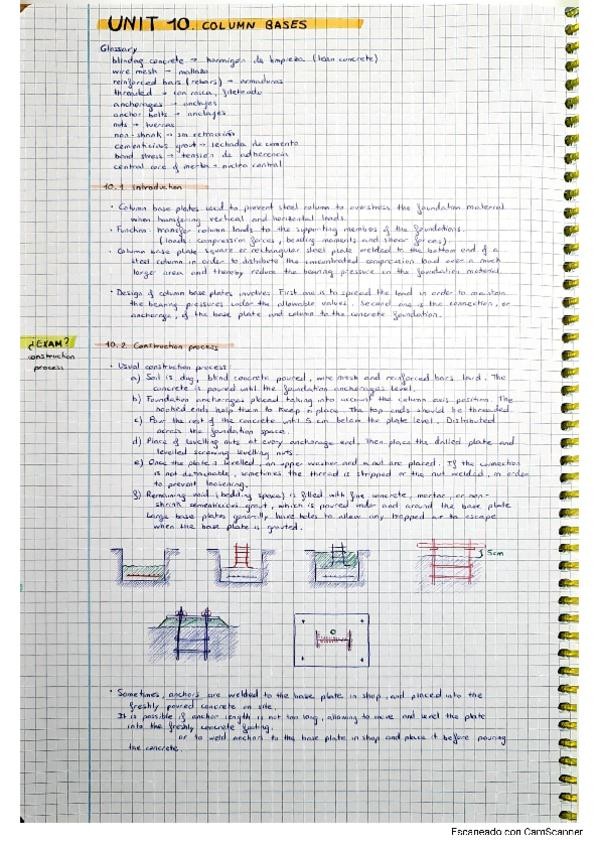 UNIT 10. COLUMN BASES
Glossary
blinding concrete → hormigón de limpieza (lean concrete)
wire mesh → mallazo
reinforced bars (rebars) → armaduras
threaded → con rosca, fileteado
anchorages → anclajes
anchor bolts → anclajes
nuts → tuercas
non-shrink → sin retracción
cementicious grout → lechada de cemento
bond stress → tensión de adherencia
central core of inertia → núcleo central
10.1. Introduction
· Column base plates used to prevent steel column to overstress the foundation material
when transfering vertical and horizontal loads.
· Function: transfer column loads to the supporting member of the foundations.
(loads: compression forces, bending moments and shear forces)
· Column base plate: square or rectangular steel plate welded to the bottom end of a
steel column in order to distribute the concentrated compression load over a much
larger area and thereby reduce the bearing pressure in the foundation material
· Design of column base plates involves: First one is to spread the load in order to maintain
the bearing pressures under the allowable values. Second one is the connection, or
anchorage, of the base plate and column to the concrete foundation.
¿EXAM?
construction
process
10.2. Construction process
· Usual construction process:
a) Soil is dug, blind concrete poured, wire mesh and reinforced bars laid. The
concrete is poured until the foundation anchorages level.
b) Foundation anchorages placed taking into account the column axis position. The
hooked ends help them to keep in place. The top ends should be threaded.
c) Pour the rest of the concrete until 5 cm below the plate level. Distributed
across the foundation space.
d) Place of levelling nuts at every anchorage end. Then place the drilled plate and
levelled screwing levelling nuts.
e) Once the plate is levelled, an upper washer and a nut are placed. If the connection
is not detachable, sometimes the thread is stripped or the nut welded, in order
to prevent loosening.
f) Remaining void (bedding space) is filled with fine concrete, mortar, or non-
shrink cementicious grout, which is poured under and around the base plate
Large base plates generally have holes to allow any trapped air to escape
when the base plate is grouted.
5cm
· Sometimes, anchors are welded to the base plate in shop, and placed into the
freshly poured concrete on site.
It is possible if anchor length is not too long, allowing to move and level the plate
into the freshly concrete footing.
or to weld anchors to the base plate in shop and place it before pouring
the concrete.
Escaneado con CamScanner